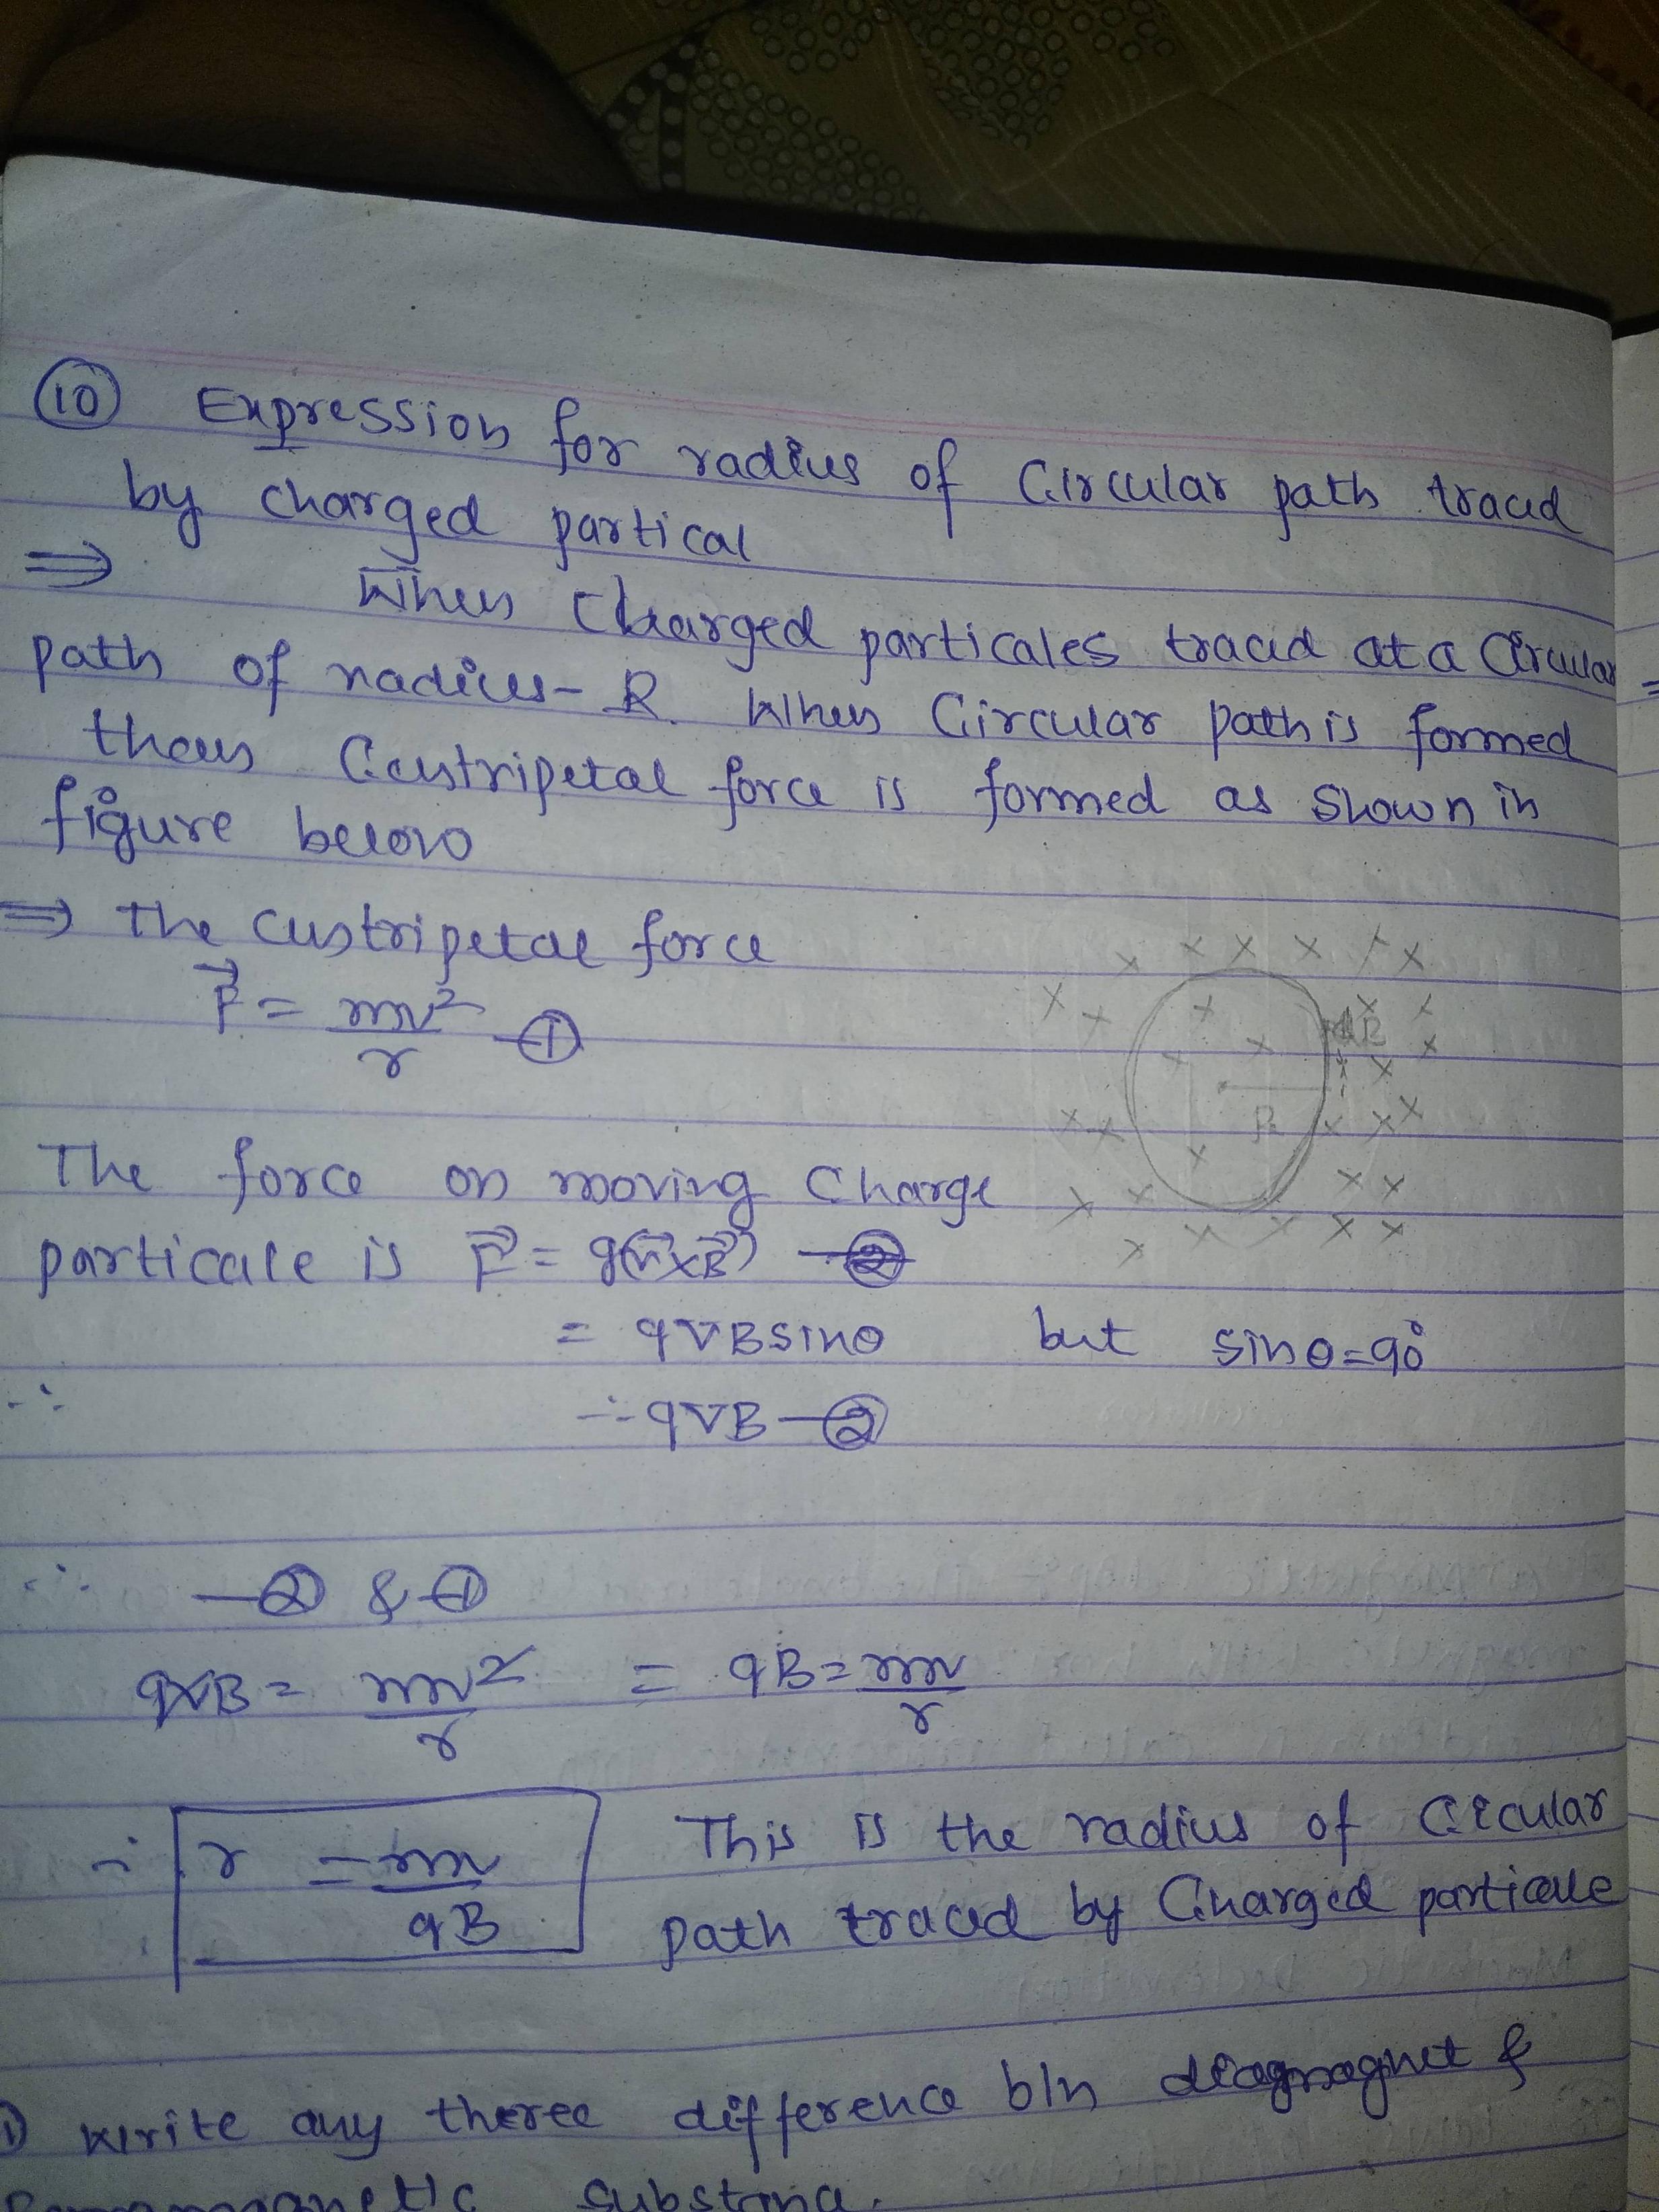 10 Expression for radius of Circular path traced
by charged partical
⇒ When Charged particales traced at a Circular
path of radius- R. When Circular path is formed
then Centripetal force is formed as shown in
figure below
⇒ The centripetal force
F⃗ = mv²/r —①
R
The force on moving Charge
particale is F⃗ = q(v⃗×B⃗) —②
= qVBsinθ but sinθ=90°
∴
∴ qVB —②
∴ —② & —①
qVB = mv²/r = qB = mv/r
∴ r = mv/qB This is the radius of Circular
path traced by Charged particale
1) Write any theree difference b/n diagmagnet &
substanc.